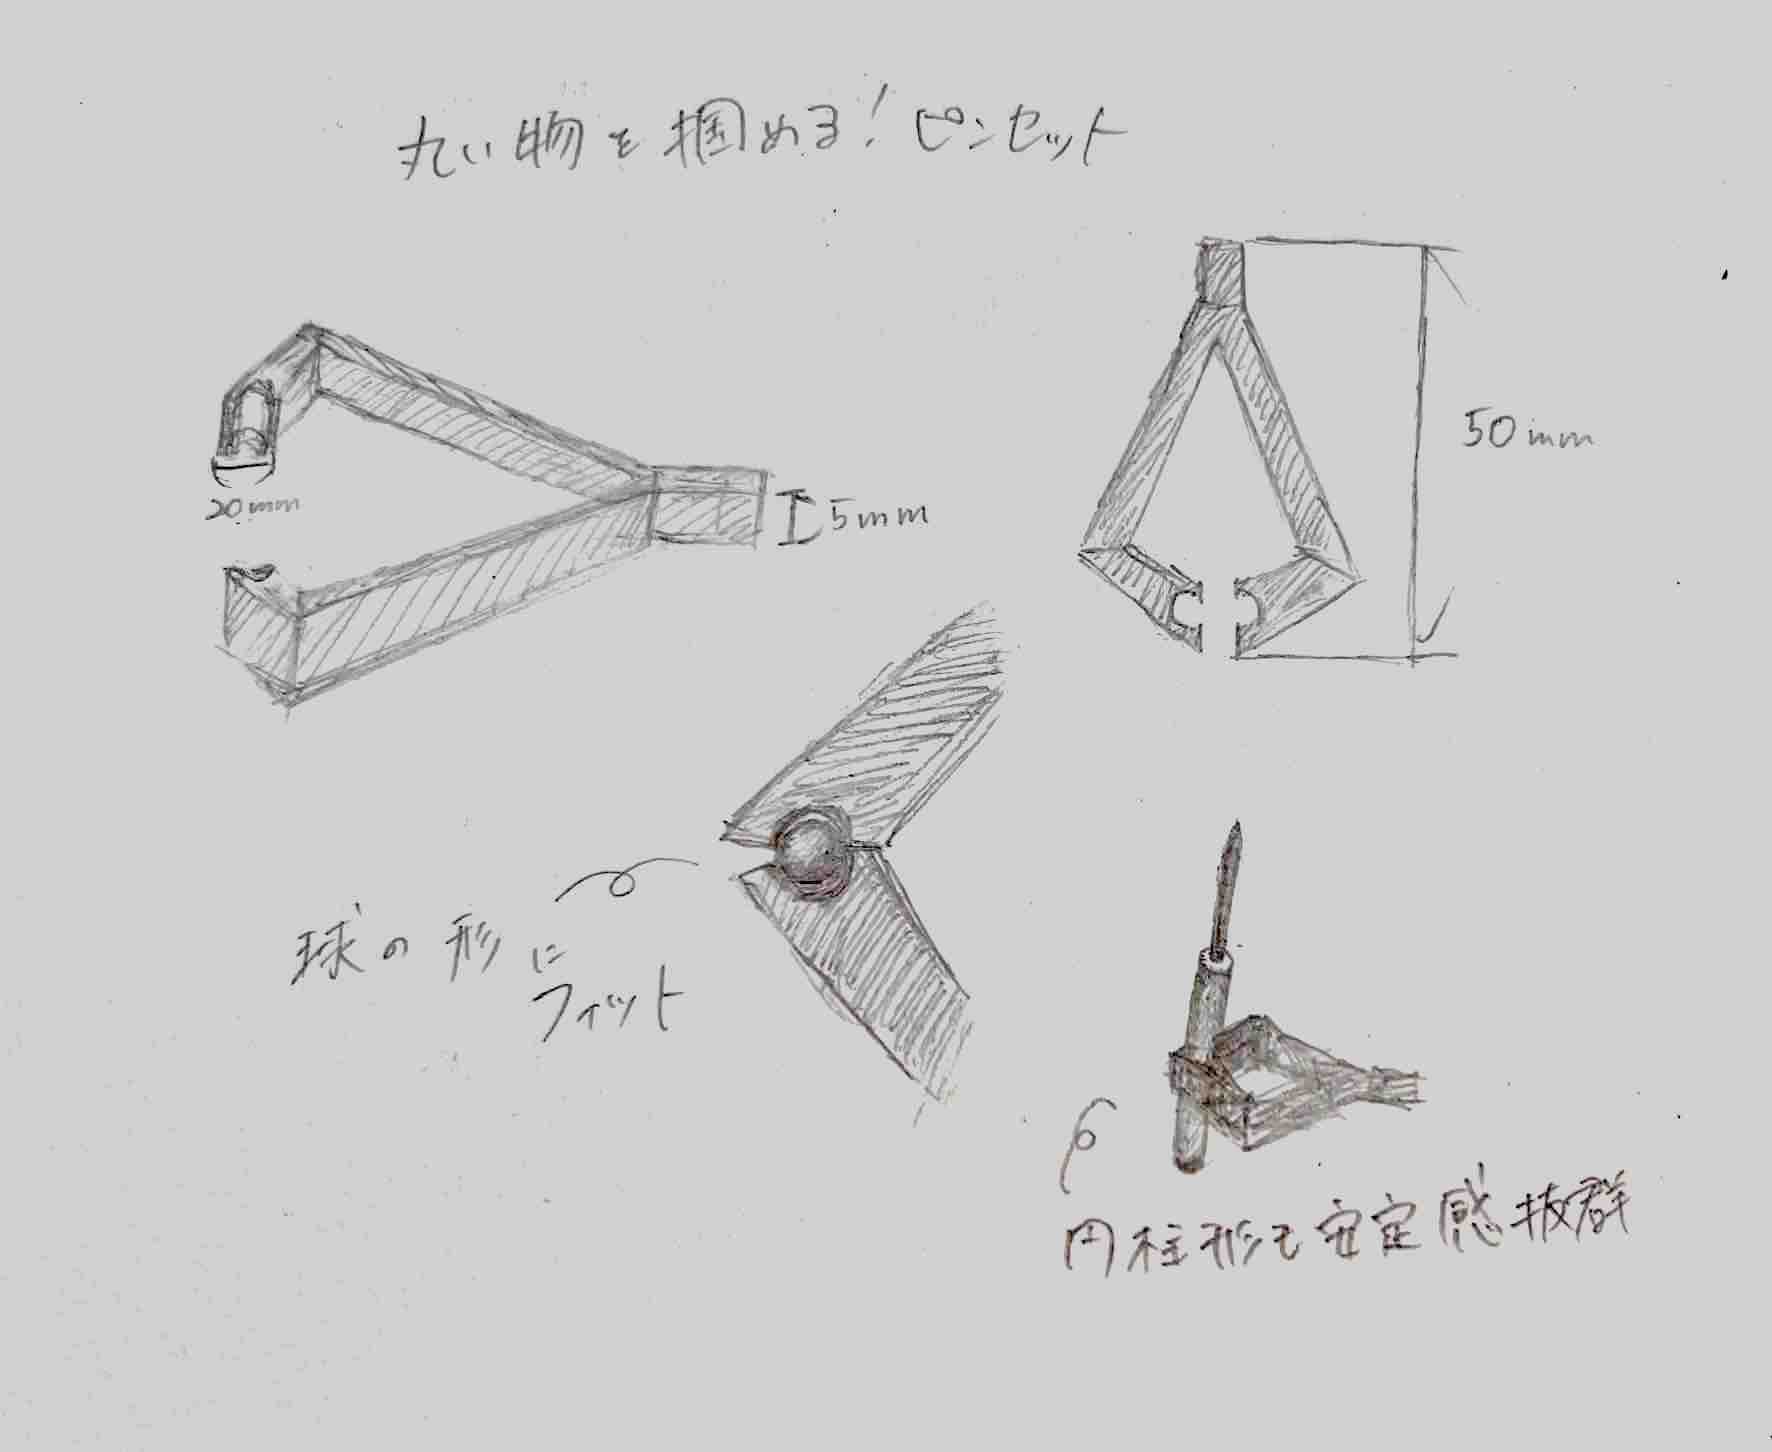 丸い物を掴める!ピンセット
50mm
20mm
5mm
球の形に
フィット
円柱形も安定感抜群